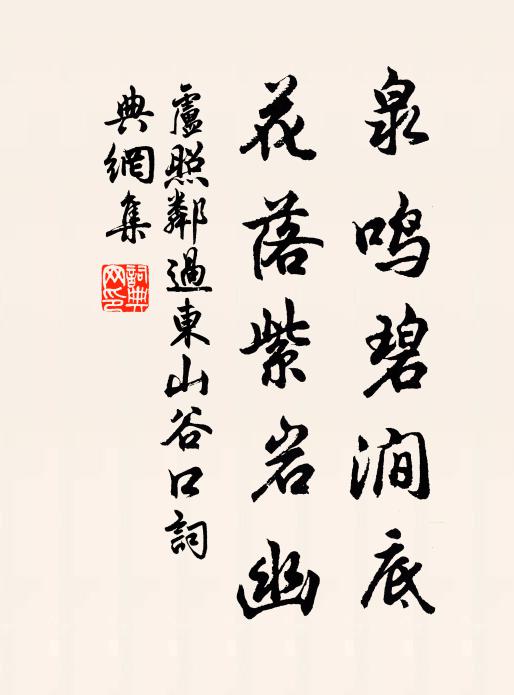 泉鸣碧涧底
花落紫岩幽
盧照鄰過東山谷口詞
典網集
詞典
网印